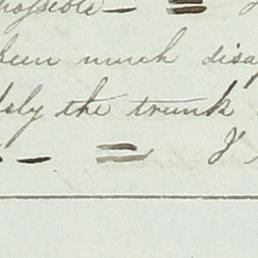 possible – =
been much disa
ly the trunk
– =